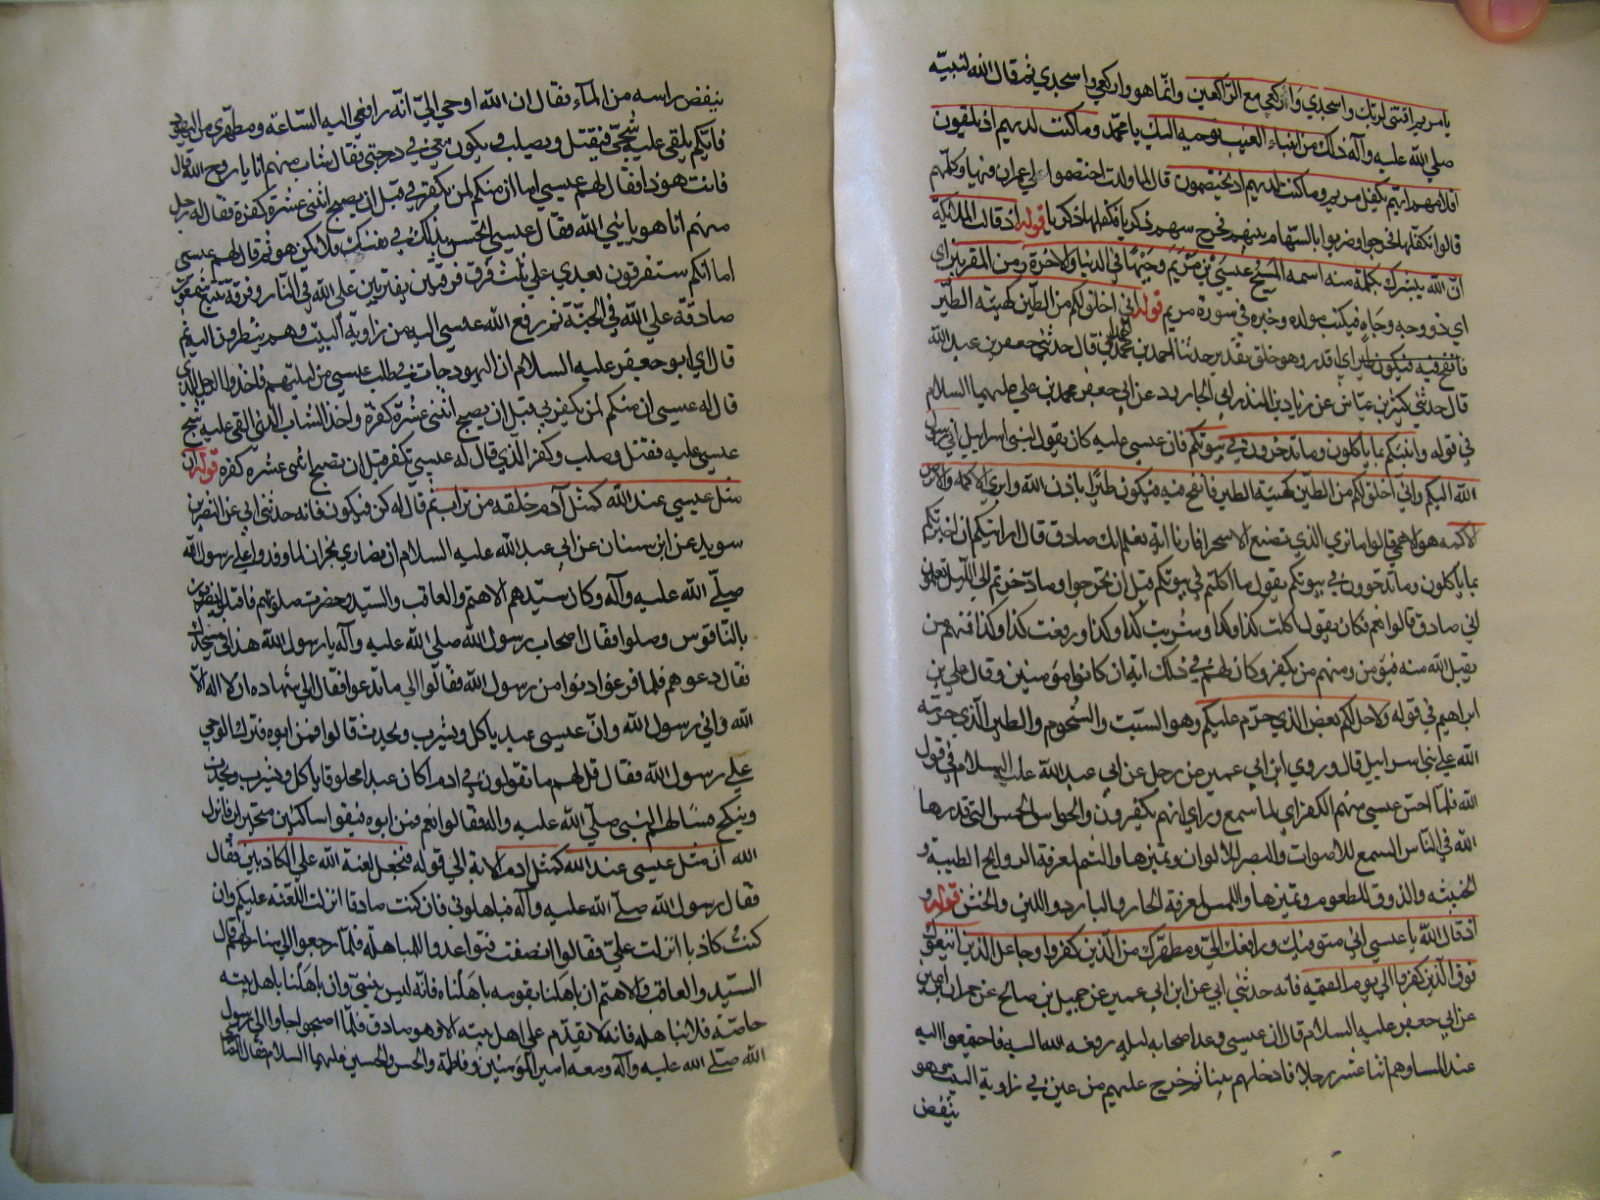 يا مريم اقنتي لربك واسجدي واركعي مع الراكعين وانما هو واركعي واسجدي ثم قال الله لنبيه
صلي الله عليه وآله ذلك من انباء الغيب نوحيه اليك يا محمد وما كنت لديهم اذ يلقون
اقلامهم ايهم يكفل مريم وما كنت لديهم اذ يختصمون قال لما ولدت اختصموا آل عمران فيها وكلهم
قالوا نحن نكفلها فخرجوا وضربوا بالسهام بينهم فخرج سهم زكريا فكفلها زكريا قوله اذ قالت الملائكة
ان الله يبشرك بكلمة منه اسمه المسيح عيسي بن مريم وجيها في الدنيا والآخرة ومن المقربين اي
اي ذو وجه وجاه فيكتب مولده وخبره في سورة مريم قوله اني اخلق لكم من الطين كهيئة الطير
فانفخ فيه فيكون طيرا اي اقدر وهو خلق تقدير حدثنا احمد بن محمد قال حدثني جعفر بن عبد الله
قال حدثني كثير بن عياش عن زياد بن المنذر ابي الجارود عن ابي جعفر محمد بن علي عليهما السلام
في قوله وانبئكم بما تاكلون وما تدخرون في بيوتكم فان عيسي عليه كان يقول لبني اسرائيل اني رسول
الله اليكم واني اخلق لكم من الطين كهيئة الطير فانفخ فيه فيكون طيرا باذن الله وابري الاكمه والابرص
الاكمه هو الاعمي قالوا ما نري الذي تصنع الا سحرا فارنا آية نعلم انك صادق قال ارايتكم ان اخبرتكم
بما تاكلون وما تدخرون في بيوتكم يقول ما اكلتم في بيوتكم قبل ان تخرجوا وما ادخرتم الي الليل تعلمون
اني صادق قالوا نعم فكان يقول اكلت كذا وكذا وشربت كذا وكذا ورفعت كذا وكذا فمنهم من
يقبل الله منه فيؤمن ومنهم من يكفر وكان لهم في ذلك اية ان كانوا مؤمنين وقال علي بن
ابراهيم في قوله ولاحل لكم بعض الذي حرم عليكم وهو السبت والشحوم والطير الذي حرمه
الله علي بني اسرائيل قال وروي ابن ابي عمير عن رجل عن ابي عبد الله عليه السلام في قول
الله فلما احس عيسي منهم الكفر اي لما سمع وراي انهم يكفرون والحواس الخمس التي قدرها
الله في الناس السمع للاصوات والبصر للالوان وتميزها والشم لمعرفة الروايح الطيبة و
الخبيثه والذوق للطعوم وتميزها واللمس لمعرفة الحار والبارد واللين والخشن قوله و
اذ قال الله يا عيسي اني متوفيك ورافعك الي ومطهرك من الذين كفروا وجاعل الذين اتبعوك
فوق الذين كفروا الي يوم القيمة فانه حدثني ابي عن ابن ابي عمير عن جميل بن صالح عن حمران بن اعين
عن ابي جعفر عليه السلام قال ان عيسي وعد اصحابه ليلة رفعه الله اليه فاجتمعوا اليه
عند المساء وهم اثنا عشر رجلا فادخلهم بيتا ثم خرج عليهم من عين في زاوية البيت وهو
ينفض
ينفض راسه من الماء فقال ان الله اوحي الي انه رافعي اليه الساعة ومطهري من اليهود
فايكم يلقي عليه شبحي فيقتل ويصلب ويكون معي في درجتي فقال شاب منهم انا يا روح الله قال
فانت هوذا فقال لهم عيسي اما ان منكم لمن يكفر بي قبل ان يصبح اثنتي عشرة كفرة فقال له رجل
منهم انا هو يا نبي الله فقال عيسي اتحس بذلك في نفسك فلتكن هو ثم قال لهم عيسي
اما انكم ستفترقون بعدي علي ثلث فرق فرقتين مفتريتين علي الله في النار وفرقة تتبع شمعون
صادقة علي الله في الجنة ثم رفع الله عيسي اليه من زاوية البيت وهم ينظرون اليه ثم
قال اي ابو جعفر عليه السلام ان اليهود جاءت في طلب عيسي من ليلتهم فاخذوا الرجل الذي
قال له عيسي ان منكم لمن يكفر بي قبل ان يصبح اثنتي عشرة كفرة واخذ الشاب الذي القي عليه شبح
عيسي عليه فقتل وصلب وكفر الذي قال له عيسي تكفر قبل ان تصبح اثنتي عشره كفره قوله ان
مثل عيسي عند الله كمثل آدم خلقه من تراب ثم قال له كن فيكون فانه حدثني ابي عن النضر بن
سويد عن ابن سنان عن ابي عبد الله عليه السلام ان نصاري نجران لما وفدوا علي رسول الله
صلي الله عليه وآله وكان سيدهم الاهتم والعاقب والسيد وحضرت صلوتهم فاقبلوا يضربون
بالناقوس وصلوا فقال اصحاب رسول الله صلي الله عليه وآله يا رسول الله هذا في مسجدك
فقال دعوهم فلما فرغوا دنوا من رسول الله فقالوا الي ما تدعوا فقال الي شهادة ان لا اله الا
الله واني رسول الله وان عيسي عبد ياكل ويشرب ويحدث قالوا فمن ابوه فنزل الوحي
علي رسول الله فقال قل لهم ما تقولون في ادم اكان عبدا مخلوقا ياكل ويشرب ويحدث
وينكح فسالهم النبي صلي الله عليه واله فقالوا نعم فمن ابوه فبقوا ساكتين متحيرين فانزل
الله ان مثل عيسي عند الله كمثل ادم الاية الي قوله فنجعل لعنة الله علي الكاذبين فقال
فقال رسول الله صلي الله عليه وآله فباهلوني فان كنت صادقا انزلت اللعنة عليكم وان
كنت كاذبا انزلت علي فقالوا انصفت فتواعدوا للمباهلة فلما رجعوا الي منازلهم قال
السيد والعاقب والاهتم ان باهلنا بقومه باهلناه فانه ليس بنبي وان باهلنا باهل بيته
خاصة فلا نباهله فانه لا يقدم علي اهل بيته الا وهو صادق فلما اصبحوا جاوا الي رسول
الله صلي الله عليه وآله ومعه امير المؤمنين وفاطمة والحسن والحسين عليهم السلام فقال